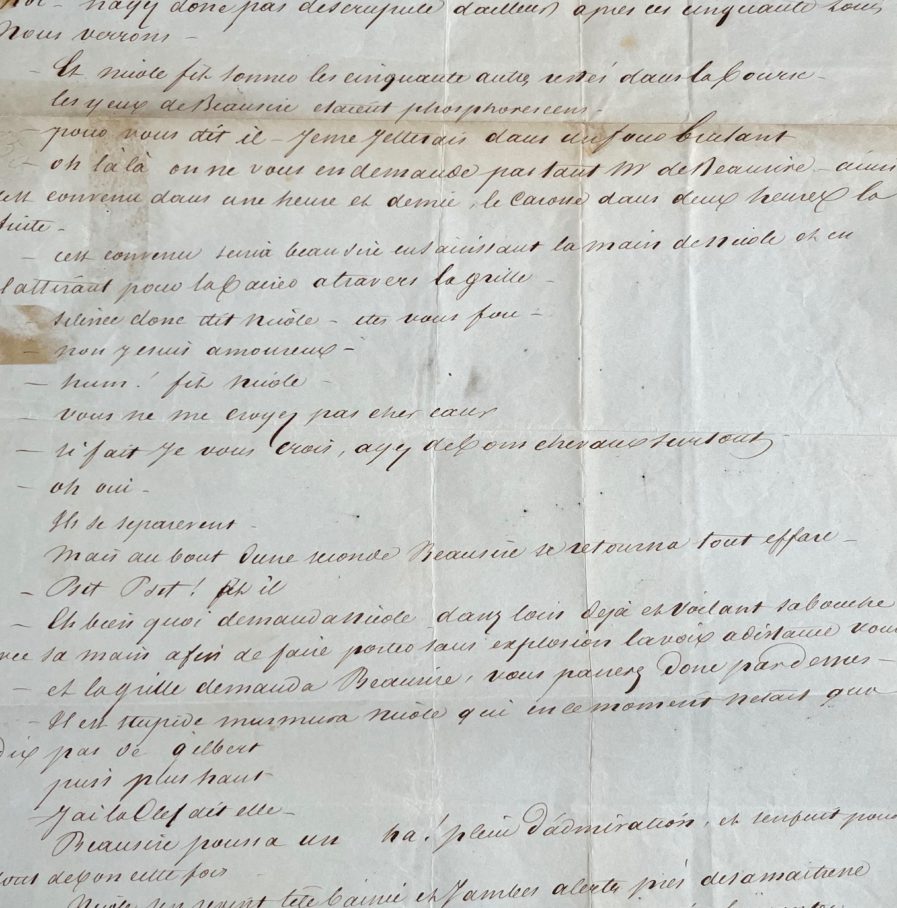 nayez donc pas de scrupule d'ailleurs après ces cinquante louis
Nous verrons -
- Et nicole fit sonner les cinquante autres restés dans la bourse -
les yeux de Beausire etaient phosphorescens -
- pour vous dit il - Jeme Jetterais dans un four brulant
- oh là là on ne vous en demande pas tant Mr de Beausire - ainsi
cest convenu dans une heure et demie, le Carosse dans deux heures la
fuite -
- cest convenu secria beausire en saisissant la main de nicole et en
lattirant pour la baiser atravers la grille -
- silence donc dit nicole - etes vous fou -
- non Jesuis amoureux -
- hum! fit nicole -
- vous ne me croyez pas cher cœur
- si fait Je vous crois, ayez de bons chevaux surtout
- oh oui -
Ils se separerent -
Mais au bout dune seconde Beausire se retourna tout effaré -
- Pst Pst! fit il
- Eh bien quoi demanda nicole dassez loin deja et voilant sa bouche
avec sa main afin de faire porter sans explosion la voix adistance voulue
- et la grille demanda Beausire, vous passerez donc pardessus -
- Il est stupide murmura nicole qui en ce moment netait qua
dix pas de gilbert
puis plus haut
- J'ai la Clef dit elle -
Beausire poussa un ha! plein d'admiration, et senfuit pour
tout debon cette fois -
Nicole sen revint tête baissée et Jambes alertes près desamaitresse